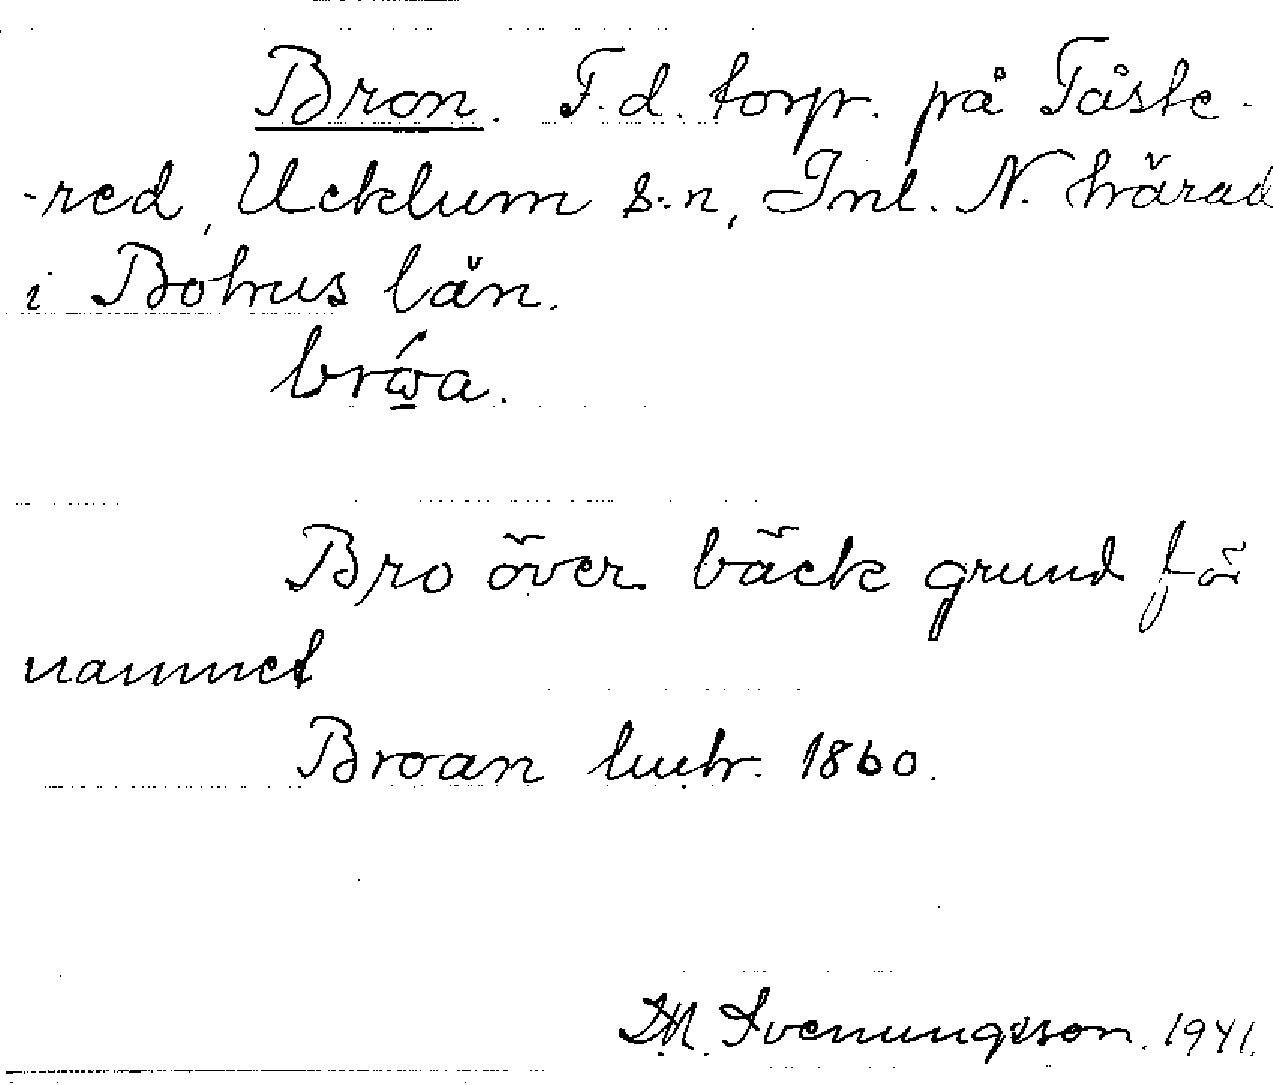 Bron. F.d. torp. på Tåste-
-red, Ucklum s:n, Inl. N. härad
i Bohus län.
Bro över bäck grund för
namnet
Broan husfr. 1860.
Svenungsson. 1941.